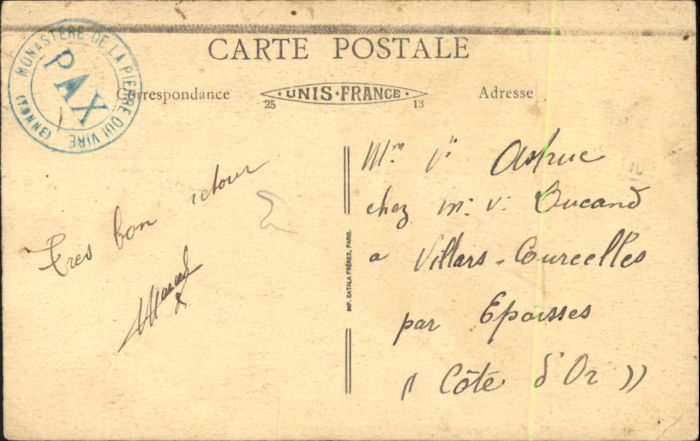 MONASTÈRE DE LA PIERRE QUI VIRE
PAX
(YONNE)
CARTE POSTALE
Correspondance
UNIS-FRANCE
25
13
Adresse
Très bon retour
Marcel
Mme Vve Astruc
chez m. V. Bucand
a Villars-Courcelles
par Epoisses
(( Côte d'Or ))
IMP. CATALA FRÈRES, PARIS.